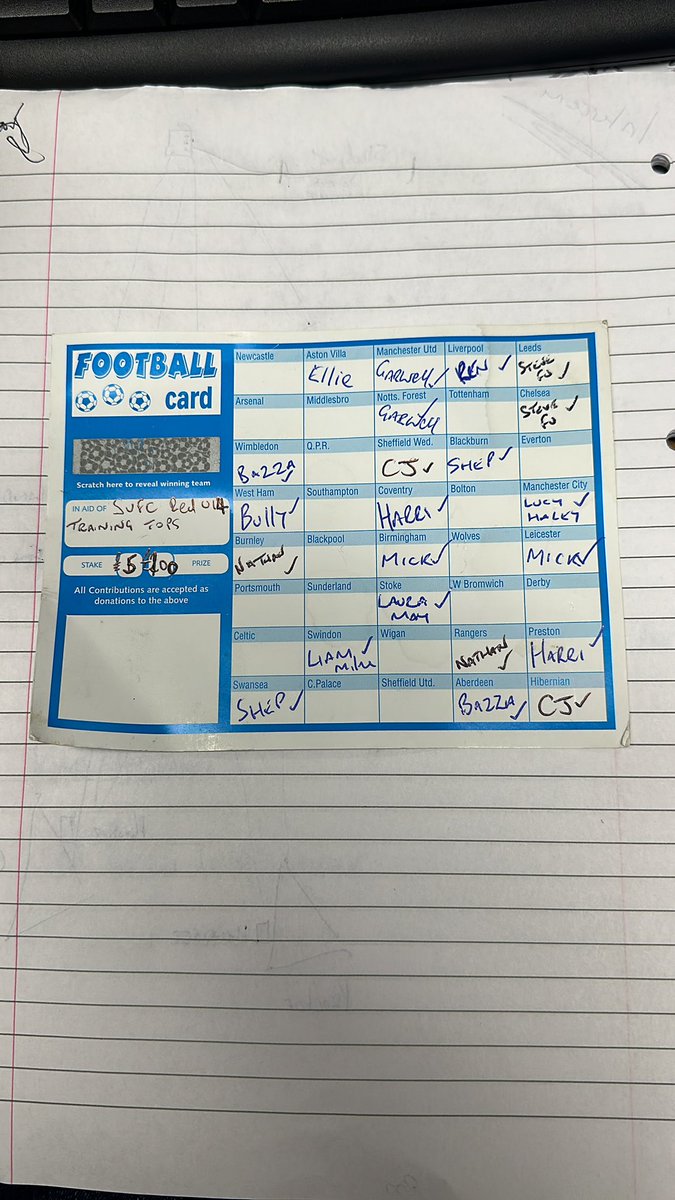 FOOTBALL
card
Scratch here to reveal winning team
IN AID OF SUFC Red U14
TRAINING TOPS
STAKE £5 £100 PRIZE
All Contributions are accepted as
donations to the above
Newcastle Aston Villa Manchester Utd Liverpool Leeds
Ellie GARWELL BEN STEVE
Arsenal Middlesbro Notts. Forest Tottenham Chelsea
GARWELL STEVE
Wimbledon Q.P.R. Sheffield Wed. Blackburn Everton
BAZZA ✓ CJ ✓ SHEP ✓
West Ham Southampton Coventry Bolton Manchester City
Bully ✓ HARRI ✓ LUCY ✓
HALEY
Burnley Blackpool Birmingham Wolves Leicester
NATHAN ✓ MICK ✓ MICK ✓
Portsmouth Sunderland Stoke W Bromwich Derby
LAURA ✓
MAY
Celtic Swindon Wigan Rangers Preston
LIAM ✓ NATHAN ✓ HARRI ✓
Swansea C.Palace Sheffield Utd. Aberdeen Hibernian
SHEP ✓ BAZZA ✓ CJ ✓